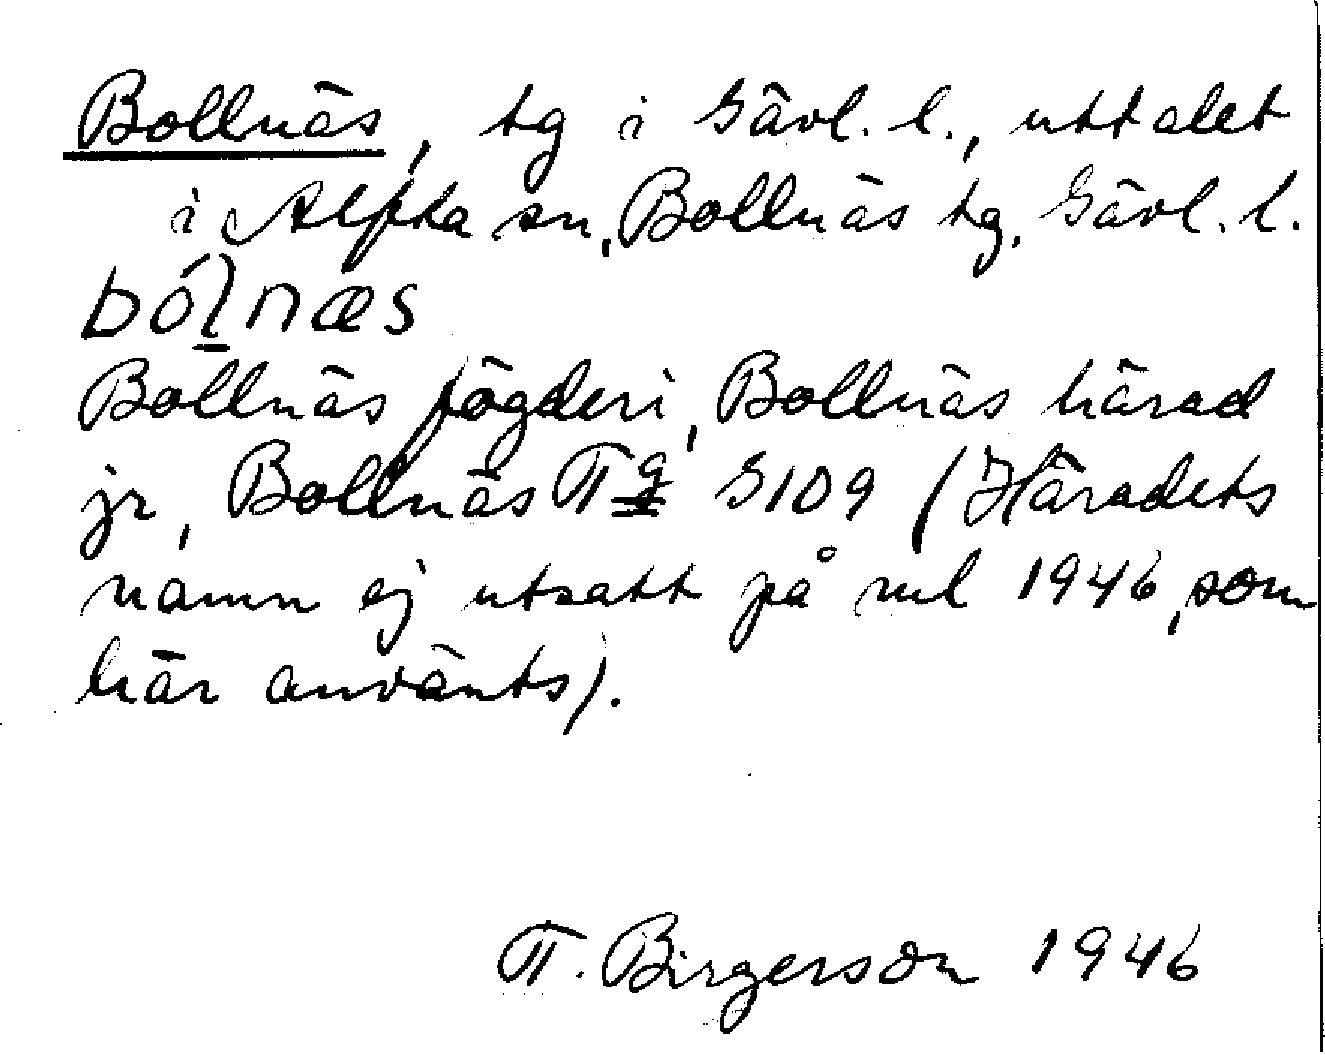 Bollnäs, tg i Gävl. l., uttalet
i Alfta sn, Bollnäs tg, Gävl. l.
bólnæs
Bollnäs fögderi, Bollnäs härad
jr, Bollnäs Tg G109 (Häradets
namn ej utsatt på rul 1946, som
här använts).
T. Birgerson 1946